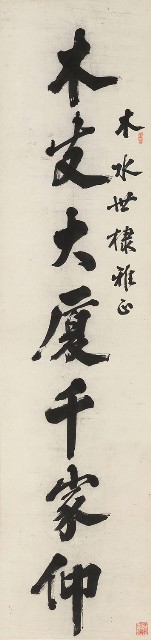 木水世棣雅正
木支大厦千家仰